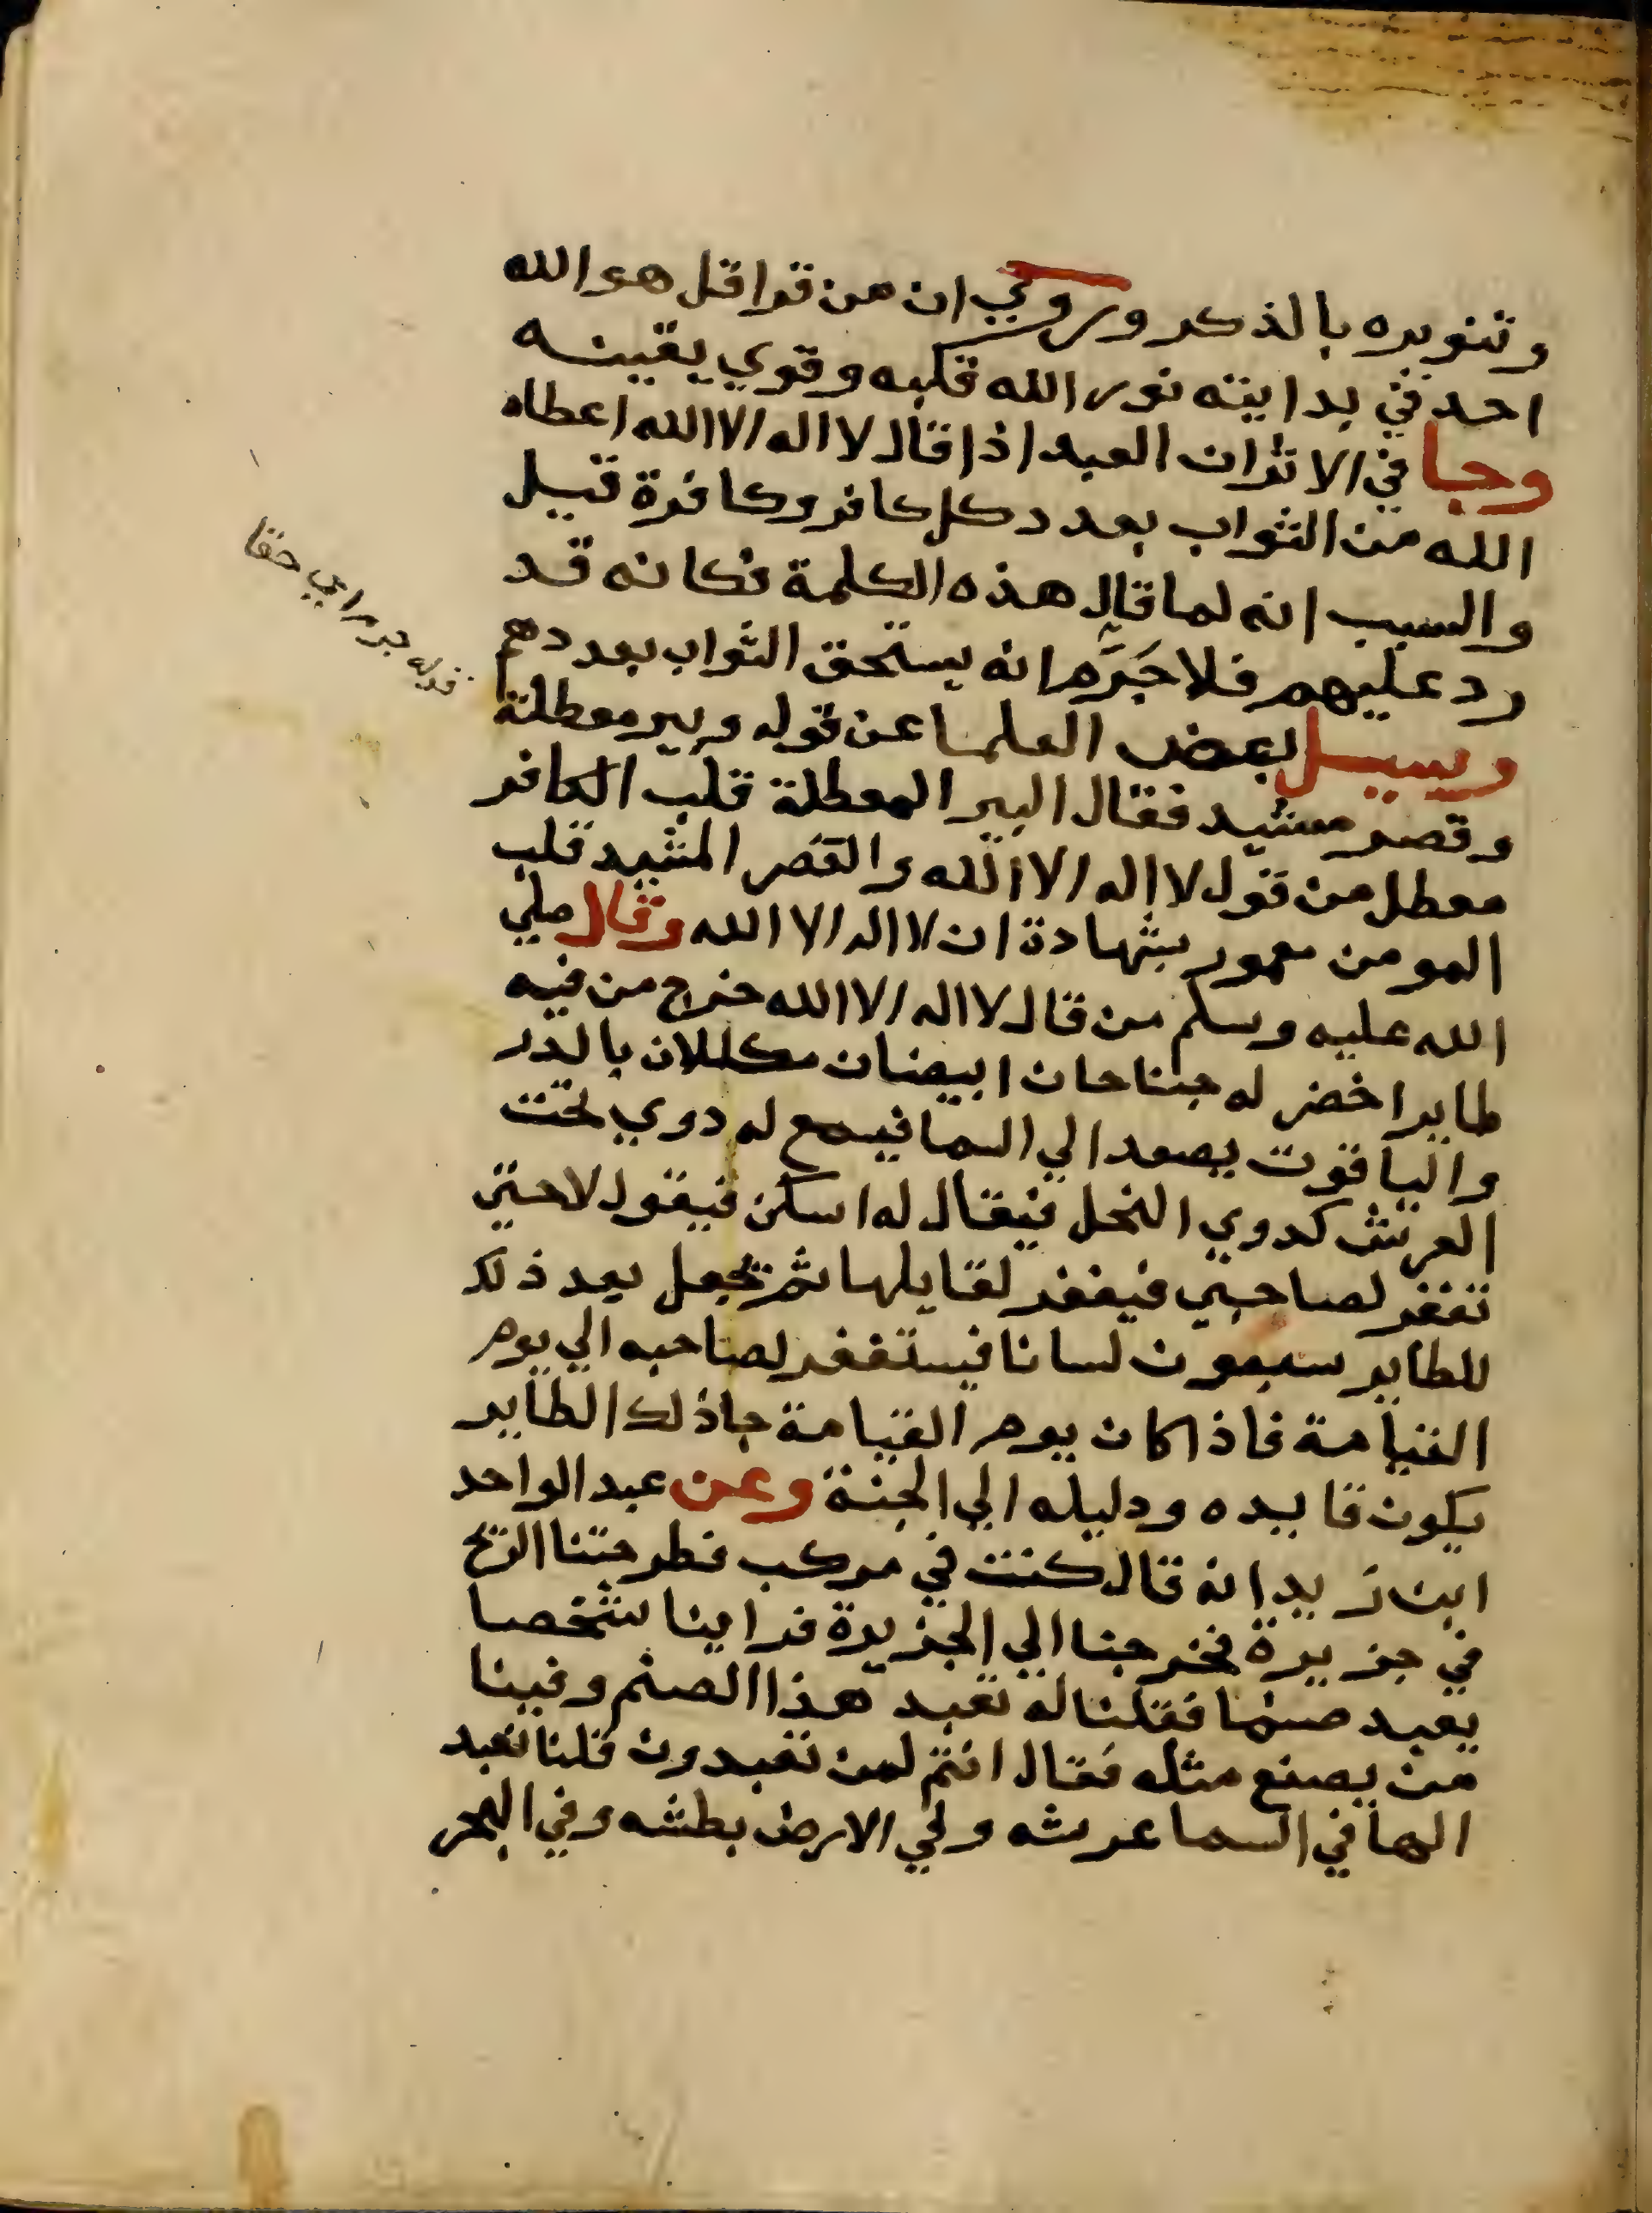 وتنويره بالذكر وروي ان من قرا قل هو الله
احد في بدايته نور الله قلبه وقوي يقينه
وجا في الاثران العبد اذا قال لا اله الا الله اعطاه
الله من الثواب بعدد كل كافر وكافرة قيل
والسبب انه لما قال هذه الكلمة فكانه قد
رد عليهم فلا جَرَمَ انه يستحق الثواب بعددهم
وسيل بعض العلما عن قوله وبير معطلة
وقصر مشيد فقال البير المعطلة قلب الكافر
معطل من قول لا اله الا الله والقصر المشيد قلب
المومن معمور بشهادة ان لا اله الا الله وقال صلي
الله عليه وسلم من قال لا اله الا الله خرج من فيه
طاير اخضر له جناحان ابيضان مكللان بالدر
والياقوت يصعد الي السما فيسمع له دوي تحت
العرش كدوي النحل فيقال له اسكن فيقول لا حتي
تغفر لصاحبي فيغفر لقايلها ثم يجعل بعد ذلك
للطاير سبعون لسانا فيستغفر لصاحبه الي يوم
القيامة فاذا كان يوم القيامة جا ذلك الطاير
يكون قايده ودليله الي الجنة وعن عبد الواحد
ابن زيد انه قال كنت في مركب فطرحتنا الريح
في جزيرة فخرجنا الي الجزيرة فراينا شخصا
يعبد صنما فقلنا له تعبد هذا الصنم وفينا
من يصنع مثله فقال انتم لمن تعبدون قلنا نعبد
الها في السما عرشه وفي الارض بطشه وفي البحر
قوله جرم اي حقا